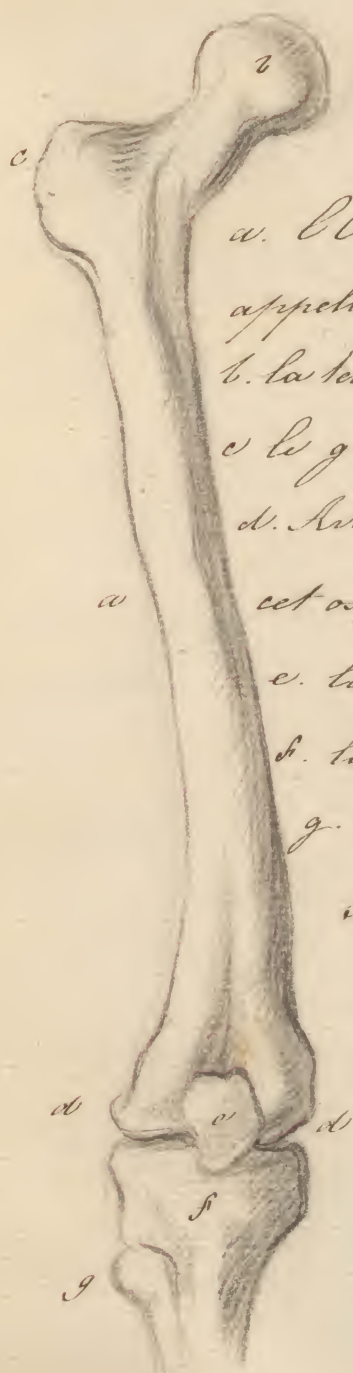 b
c
a.
appel
b. la te
c le g
d. Ar
a
cet os
e. la
f. la
g.
d
e
d
f
g